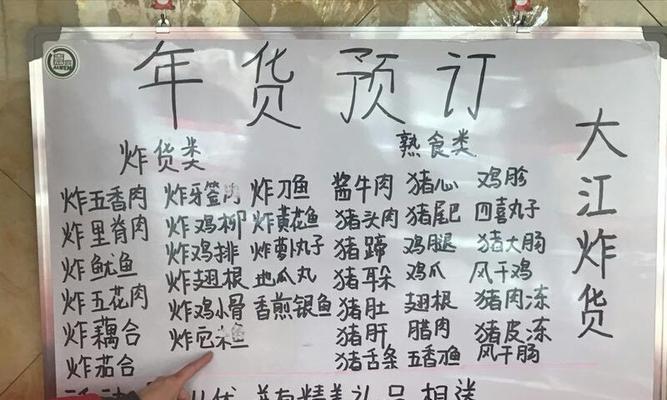 年货预订
大江炸货
炸货类
炸五香肉 炸牙签肉 炸刀鱼
炸里脊肉 炸鸡柳 炸黄花鱼
炸鱿鱼 炸鸡排 炸萝卜丸子
炸五花肉 炸翅根 地瓜丸
炸藕合 炸鸡小骨 香煎银鱼
炸茄合 炸 鱼
熟食类
酱牛肉 猪心 鸡胗
猪头肉 猪尾巴 四喜丸子
猪蹄 鸡腿 猪大肠
猪耳朵 鸡爪 风干鸡
猪肚 翅根 猪肉冻
猪肝 腊肉 猪皮冻
猪舌条 五香鱼 风干肠
优 并有精美礼品相送